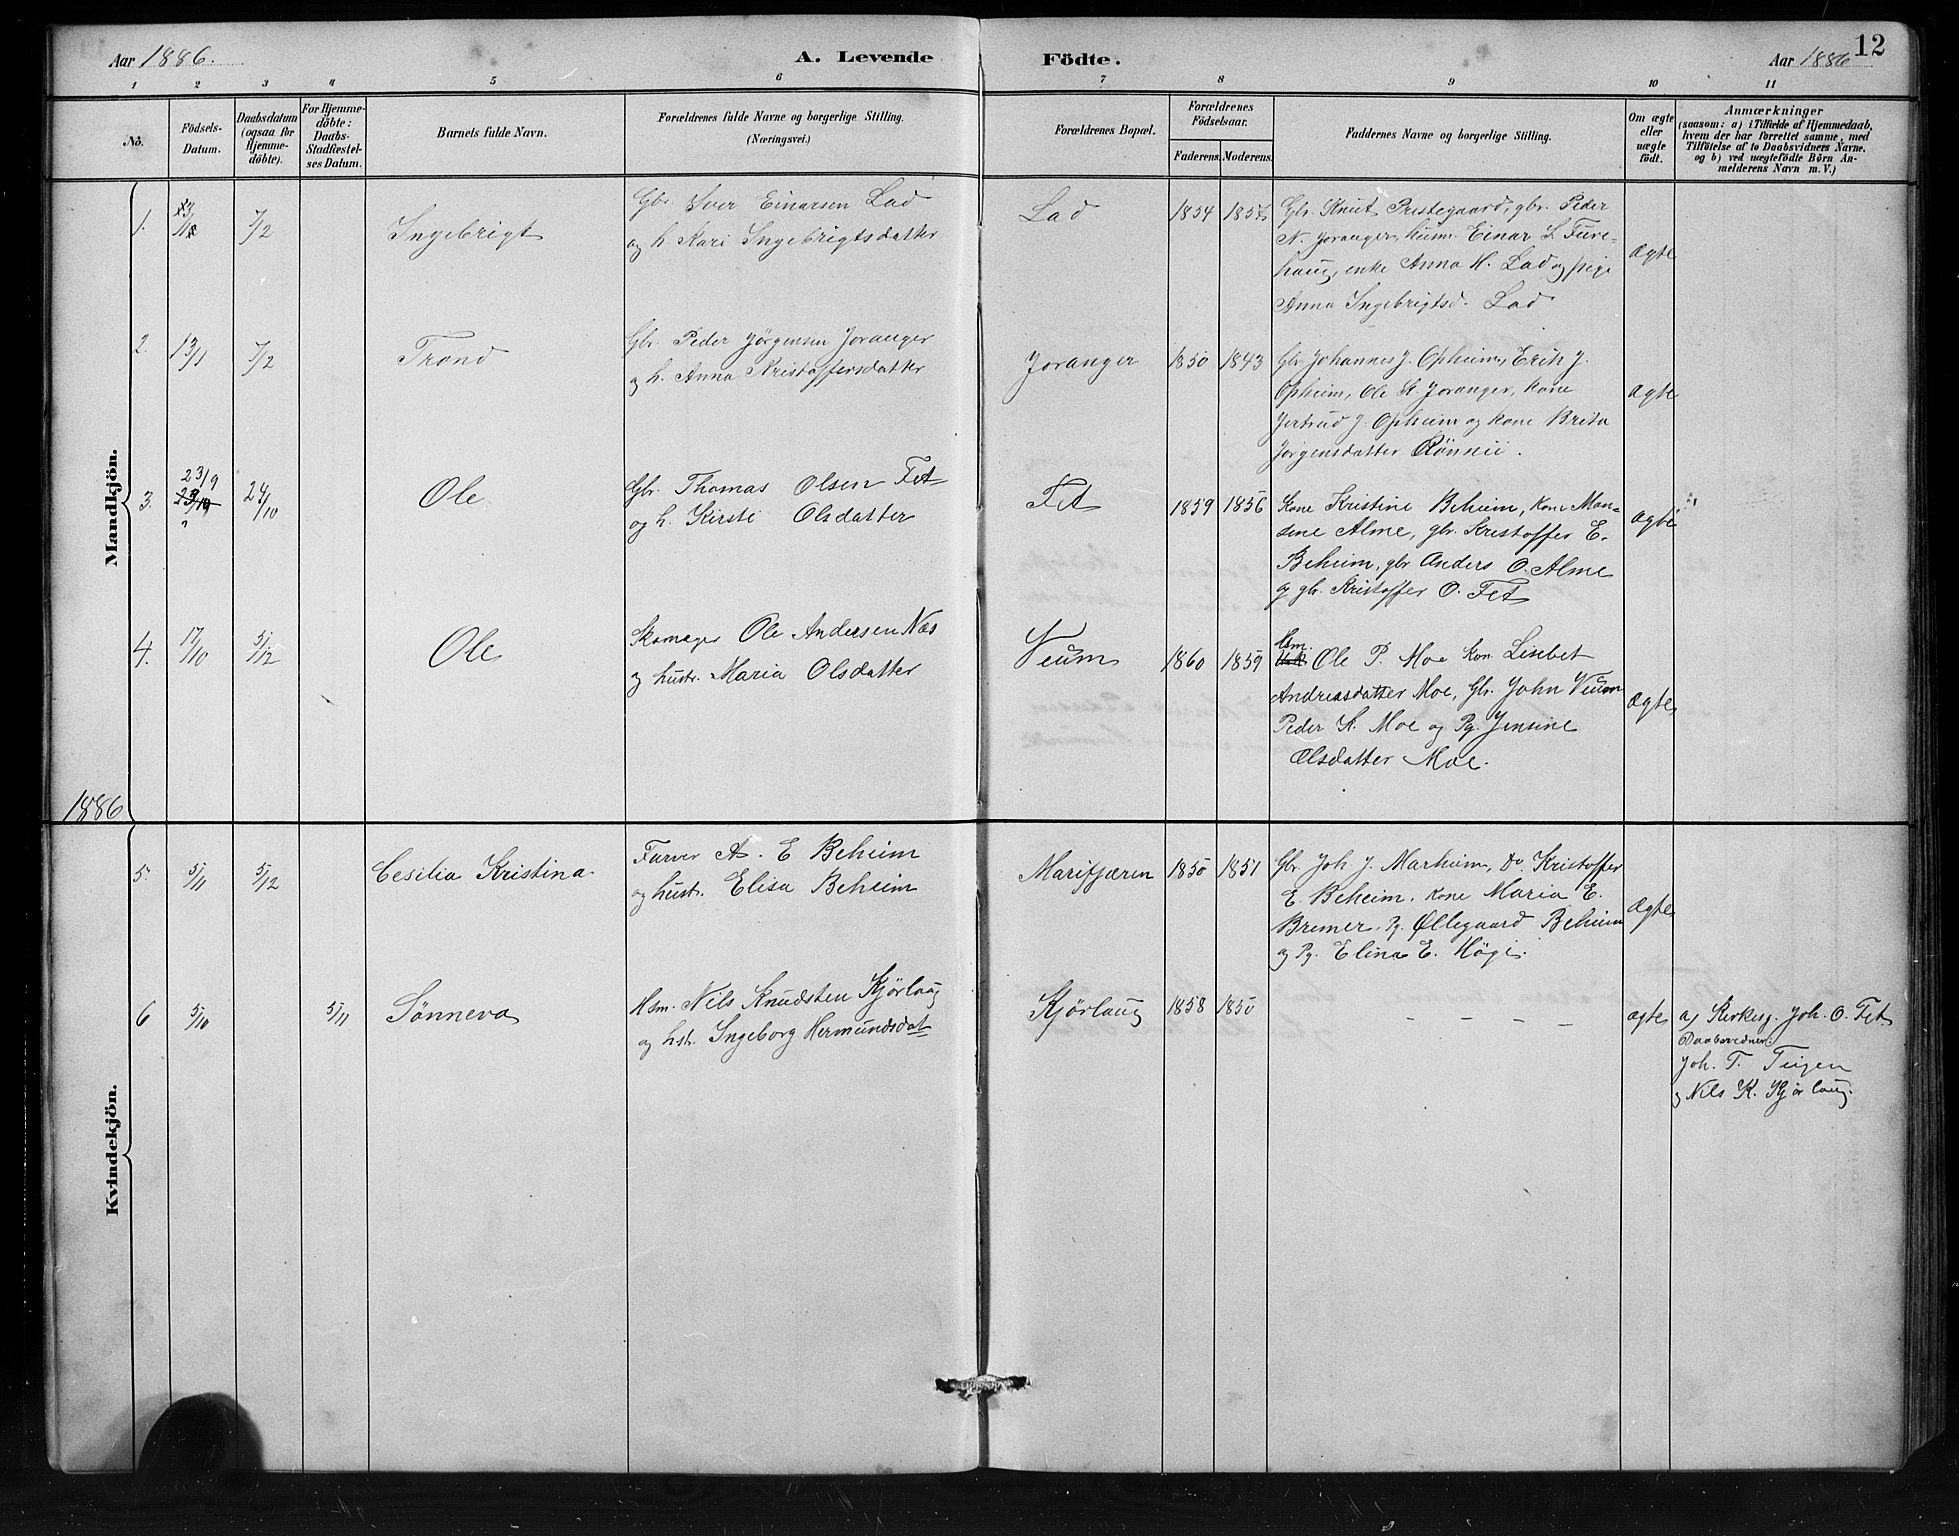 Aar 1886.
A. Levende Födte.
Aar 1886
12
1 2 3 4 5 6 7 8 9 10 11
No.
Födsels-
Datum.
Daabsdatum
(ogsaa for
Hjemme-
döbte).
For Hjemme-
döbte:
Daabs-
Stadfæstel-
ses Datum.
Barnets fulde Navn.
Forældrenes fulde Navne og borgerlige Stilling.
(Næringsvei.)
Forældrenes Bopæl.
Forældrenes
Födselsaar.
Faderens. Moderens.
Faddernes Navne og borgerlige Stilling.
Om ægte
eller
uægte
födt.
Anmærkninger
(saasom: a) i Tilfælde af Hjemmedaab,
hvem der har forrettet samme, med
Tilföielse af to Daabsvidners Navne.
og b) ved uægtefödte Börn An-
melderens Navn m. V.)
Mandkjön.
1. 7/2 Ingebrigt
Gbr. Iver Einarsen Lad
og h. Kari Ingebrigtsdatter
Lad 1854
Gbr. Knut Prestegaard, gbr. Peder
N. Joranger, husm. Einar L. Fure-
haug, enke Anna H. Lad og pige
Anna Ingebrigtsd. Lad
ægte
2. 13/1 7/2 Trond
Gbr. Peder Jørgensen Joranger
og h. Anna Kristoffersdatter
Joranger 1850 1843
Gbr Johannes J. Opheim, Erik J.
Opheim, Ole K. Joranger, kone
Jertrud J. Opheim og kone Brita
Jørgensdatter Rönnei.
ægte
3. 23/9
23/10
?
24/10 Ole
Gbr. Thomas Olsen Fet
og h. Kirsti Olsdatter
Fet 1859 1856
Kone Kristine Beheim, kone Man-
sine Alme, gbr. Kristoffer E.
Beheim, gbr Anders O. Alme
og gbr. Kristoffer O. Fet
ægte
4. 17/10 5/12 Ole
Skomager Ole Andersen Næs
og hustr. Maria Olsdatter
Veum 1860 1859
Hsm.
Ole P. Moe kon. Lisebet
Andreasdatter Moe, Gbr. John Veum
Peder K. Moe og Pg. Jensine
Olsdatter Moe.
ægte
1886
Kvindekjön.
5. 5/11 5/12 Cesilia Kristina
Farver A. E Beheim
og hustr. Elisa Beheim
Marifjæren 1850 1851
Gbr. Joh J. Marheim, Do Kristoffer
E. Beheim, kone Maria E.
Bremer, Pg. Øllegaard Beheim
og Pg. Elina E. Høgi.
ægte
6 5/10 5/11 Sønneva
Hsm. Nils Knudsten Kjørlaug
og hst. Ingeborg Hermundsdat
Kjørlaug 1858 1850
- - - -
ægte
a) Kirkesg. Joh. O. Fet
Daabsvidner:
Joh. T. Teigen
og Nils K. Kjørlaug.